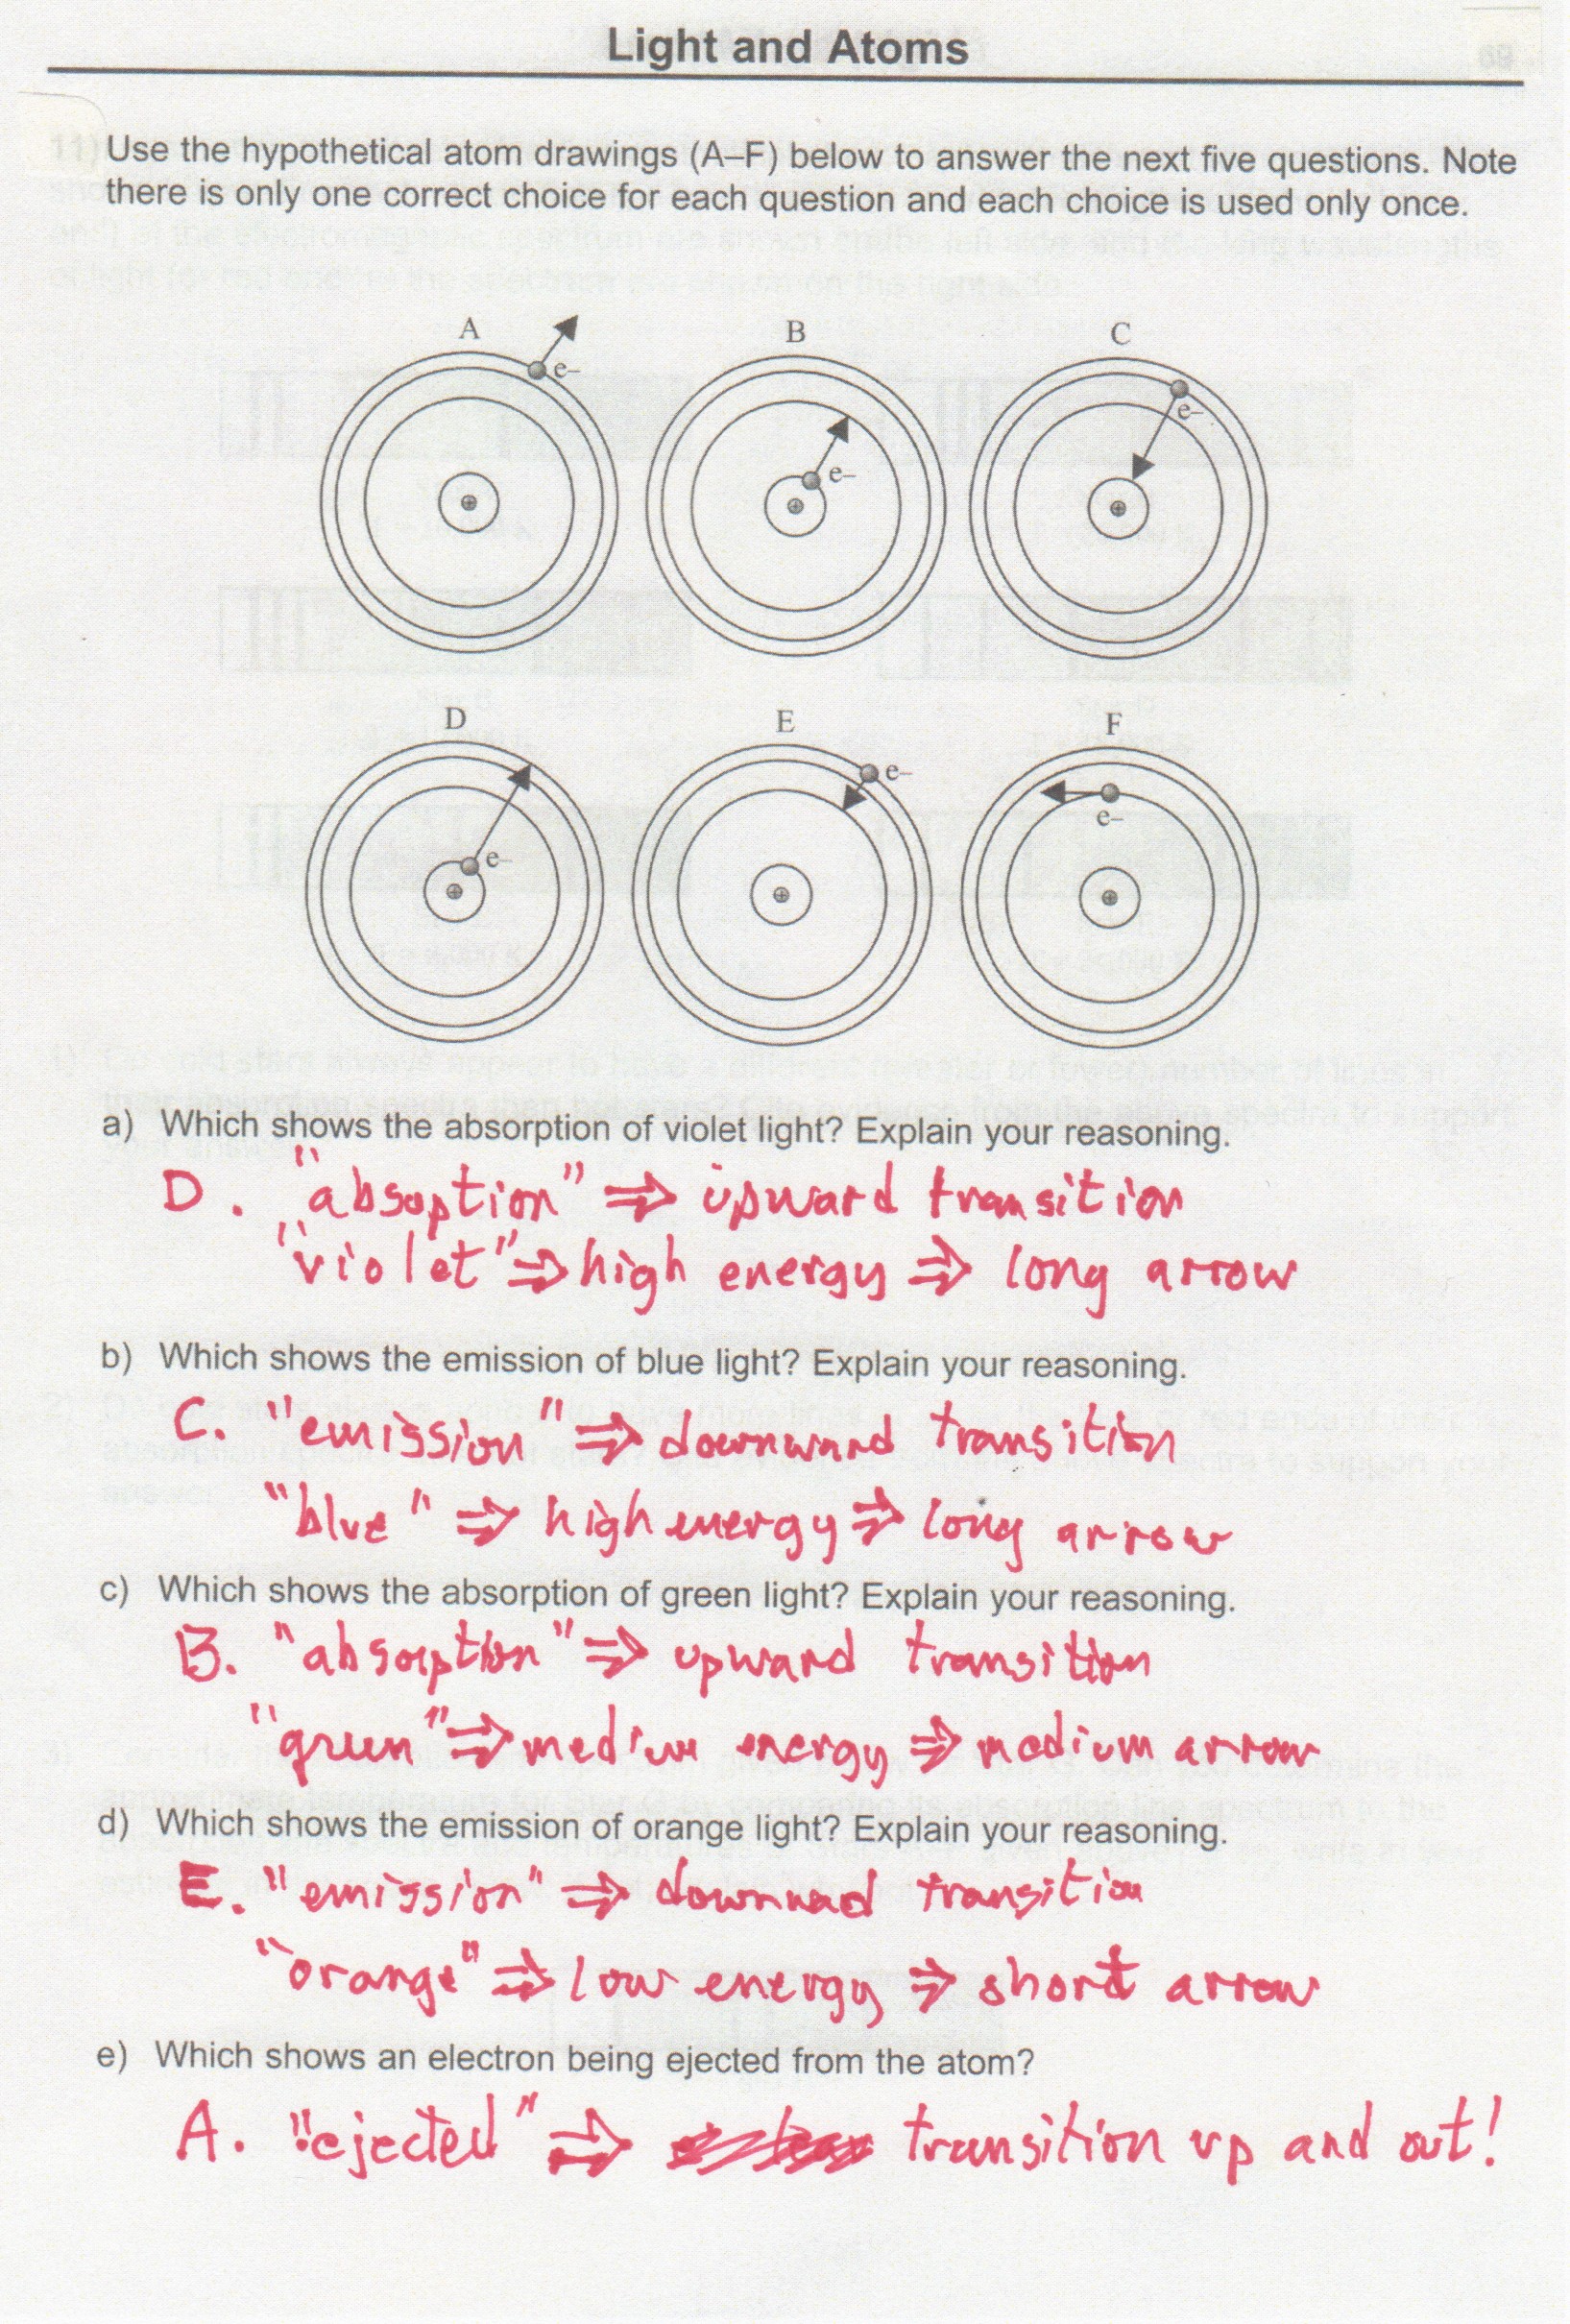 Light and Atoms
Use the hypothetical atom drawings (A–F) below to answer the next five questions. Note
there is only one correct choice for each question and each choice is used only once.
A
B
C
e–
e–
e–
D
E
F
e–
e–
e–
a) Which shows the absorption of violet light? Explain your reasoning.
D. "absoption" ⇒ upward transition
"violet" ⇒ high energy ⇒ long arrow
b) Which shows the emission of blue light? Explain your reasoning.
C. "emission" ⇒ downward transition
"blue" ⇒ high energy ⇒ long arrow
c) Which shows the absorption of green light? Explain your reasoning.
B. "absorption" ⇒ upward transition
"green" ⇒ medium energy ⇒ medium arrow
d) Which shows the emission of orange light? Explain your reasoning.
E. "emission" ⇒ downward transition
"orange" ⇒ low energy ⇒ short arrow
e) Which shows an electron being ejected from the atom?
A. "ejected" ⇒ transition up and out!